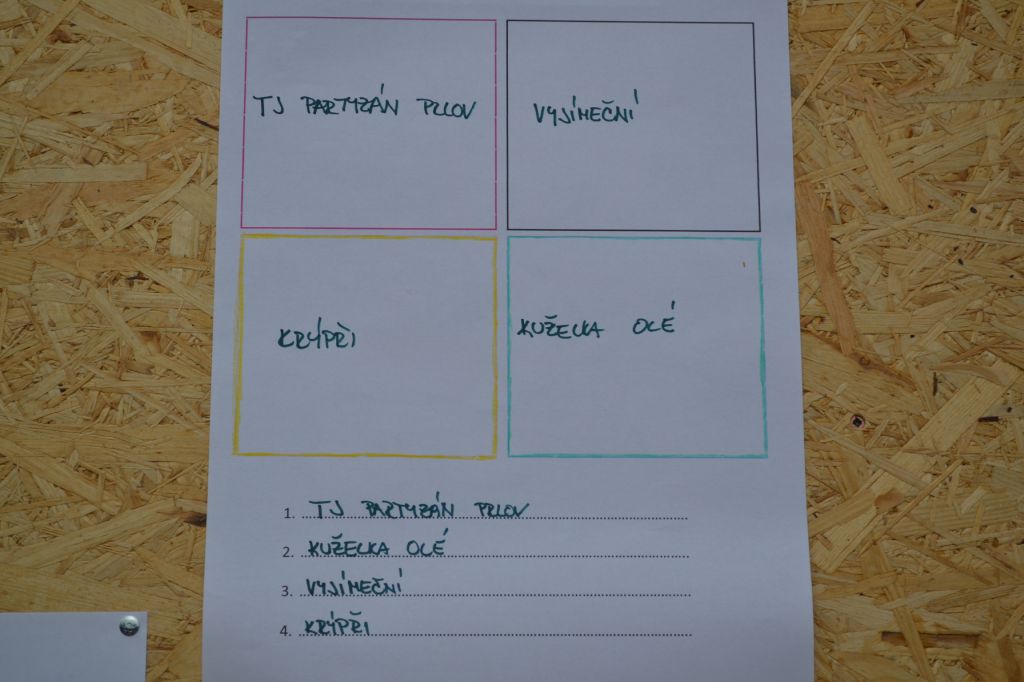 TJ PARTYZÁN PRLOV
VYJÍMEČNÍ
KRÝPŘI
KUŽELKA OLÉ
1. TJ PARTYZÁN PRLOV
2. KUŽELKA OLÉ
3. VYJÍMEČNÍ
4. KRÝPŘI